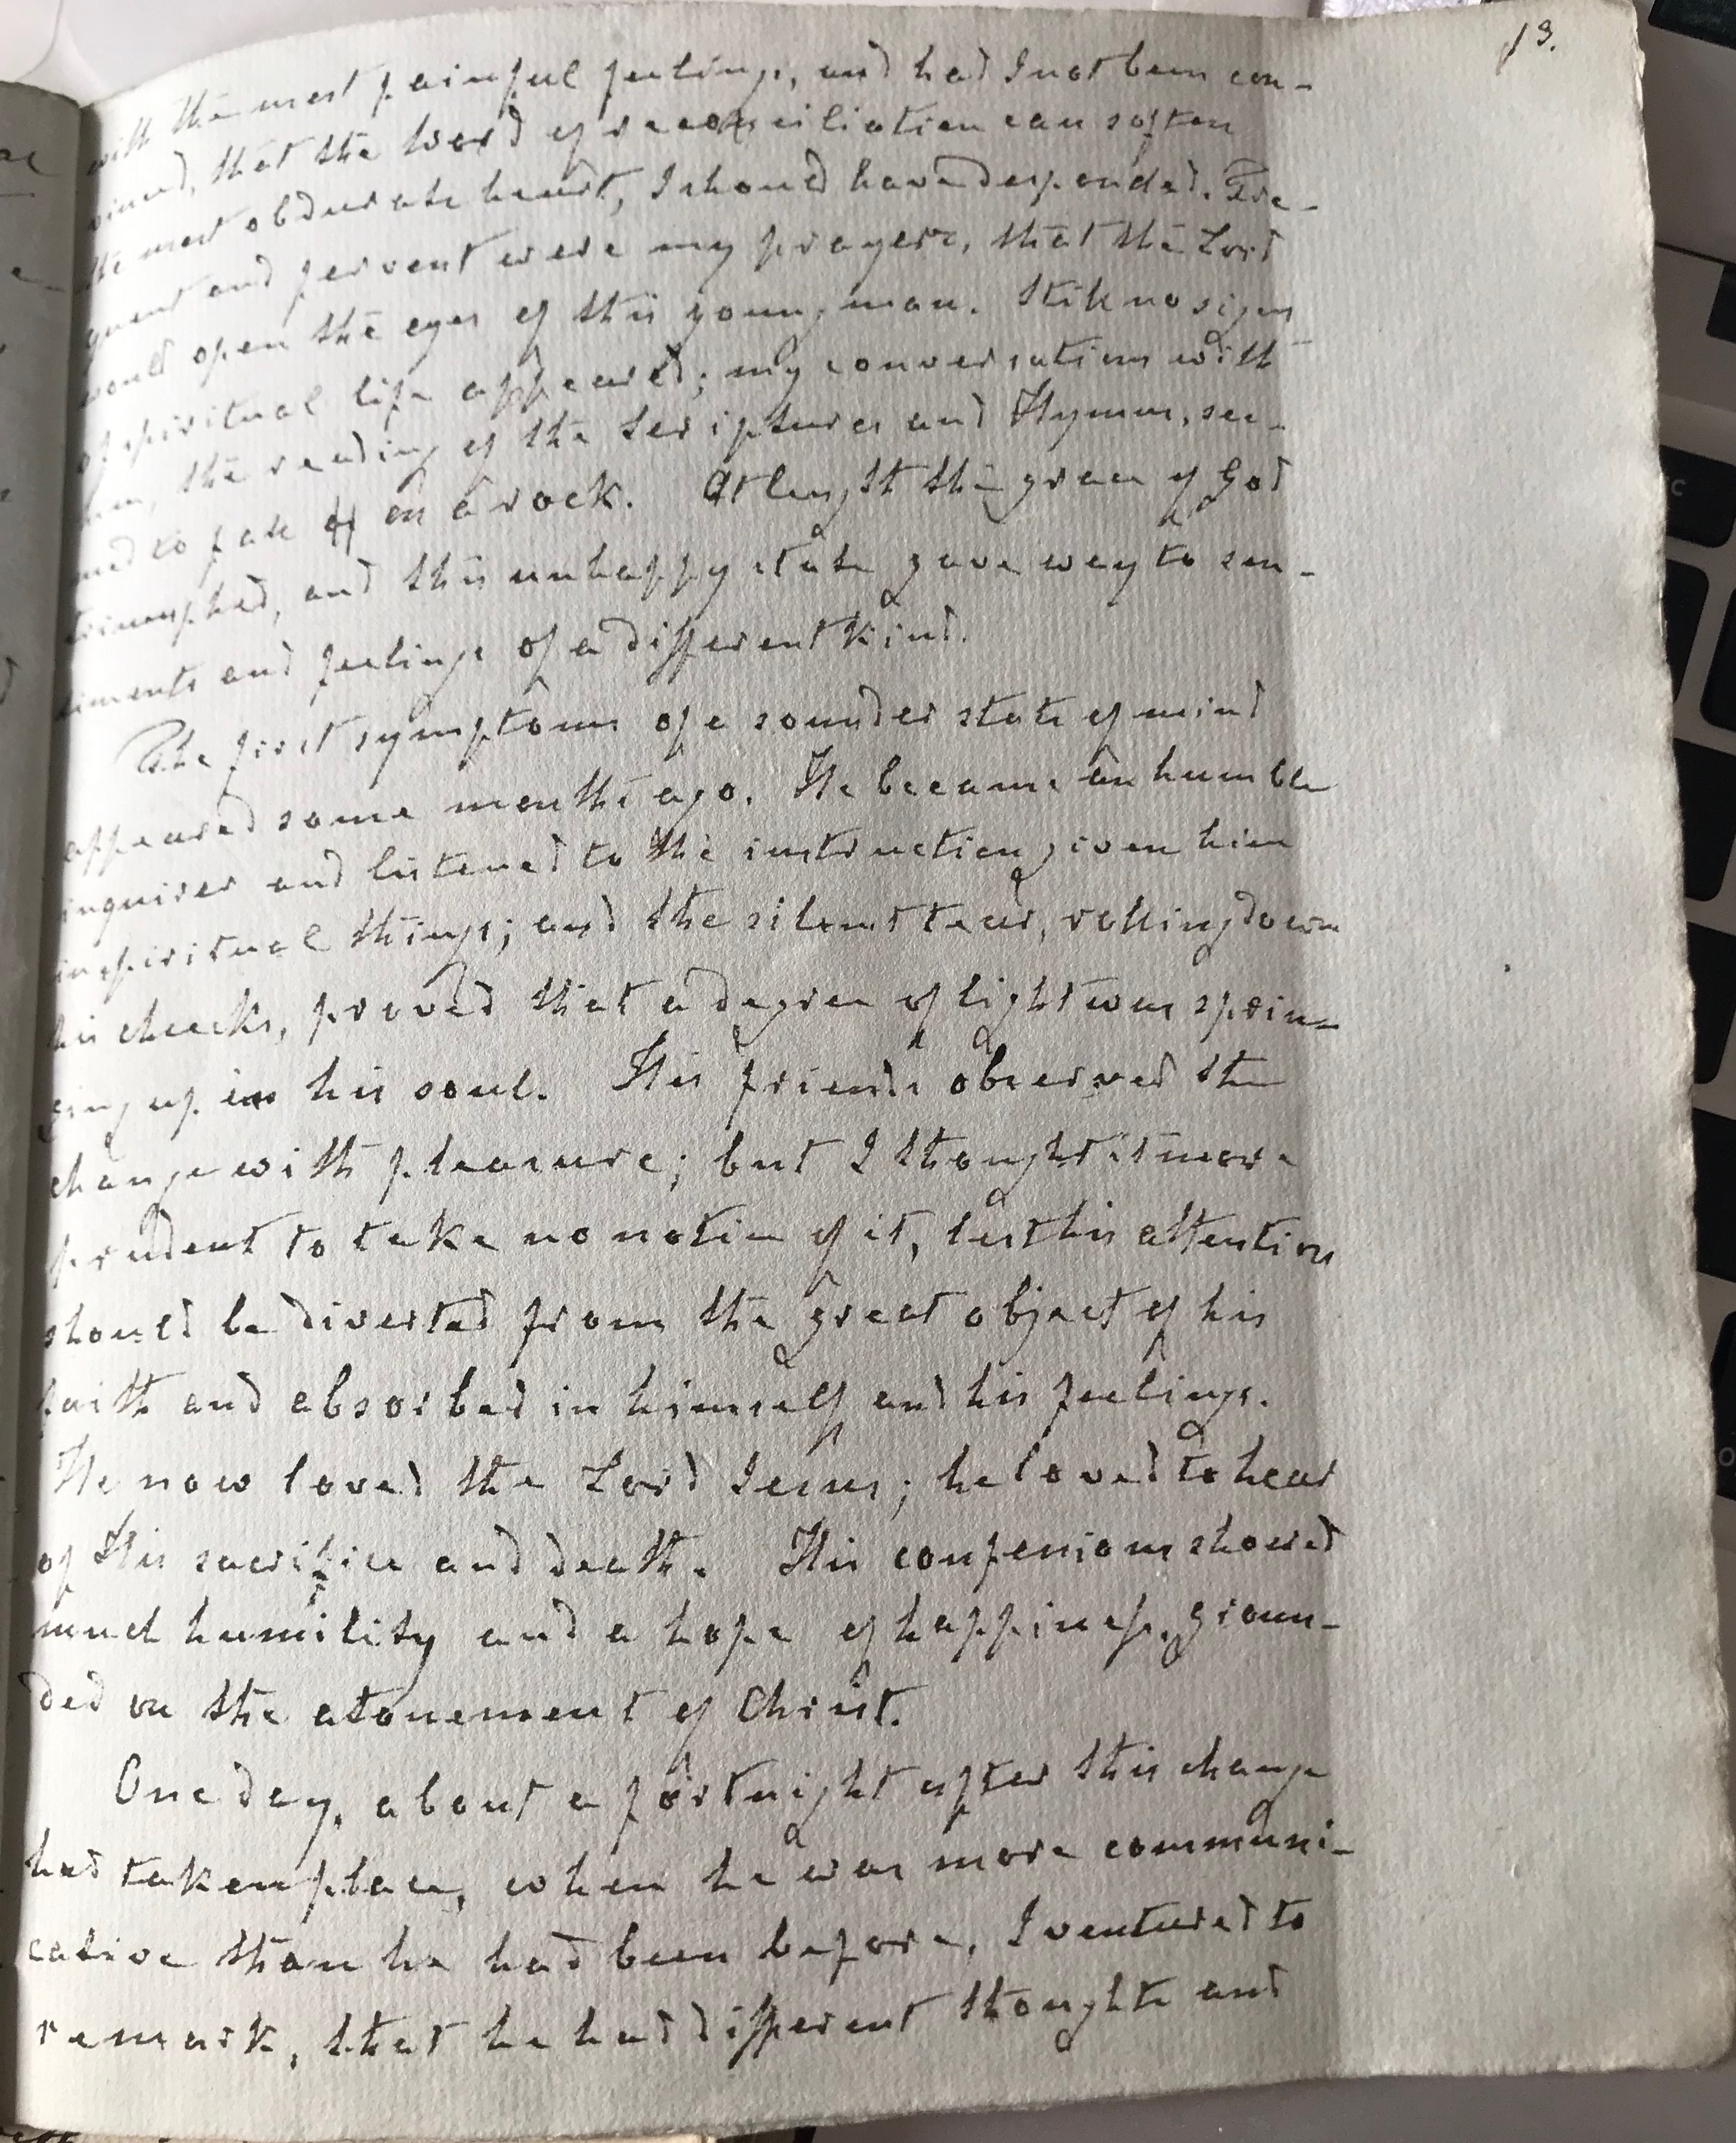 13.
with the most painful feelings, and had I not been con-
vinced, that the Word of reconciliation can soften
the most obdurate heart, I should have desponded. Fre-
quent and fervent were my prayers, that the Lord
would open the eyes of this young man. Still no signs
of spiritual life appeared; my conversations with
him, the reading of the Scriptures and Hymns, see-
med to fall on a rock. At length the grace of God
triumphed, and this unhappy state gave way to sen-
timents and feelings of a different kind.
The first symptoms of a sounder state of mind
appeared some months ago. He became an humble
inquirer and listened to the instruction given him
in spiritual things; and the silent tear, rolling down
his cheeks, proved that a degree of light was sprin-
ging up in his soul. His friends observed the
change with pleasure; but I thought it more
prudent to take no notice of it, lest his attention
should be diverted from the great object of his
faith and absorbed in himself and his feelings.
He now loved the Lord Jesus; he loved to hear
of His sacrifice and death. His confessions showed
much humility and a hope of happiness, groun-
ded on the atonement of Christ.
One day, about a fortnight after this change
had taken place, when he was more communi-
cative than he had been before, I ventured to
remark, that he had different thoughts and